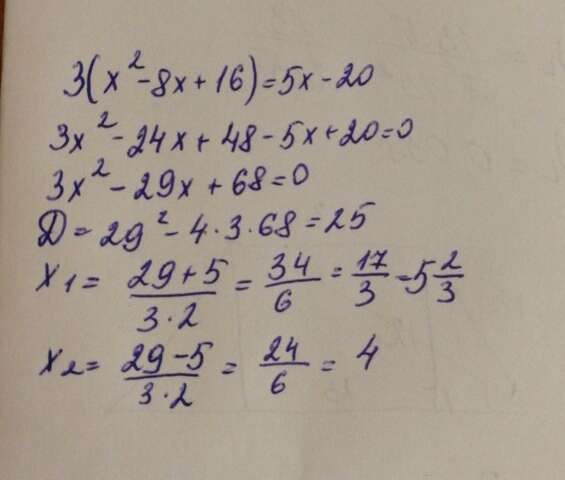 3(x²-8x+16)=5x-20
3x²-24x+48-5x+20=0
3x²-29x+68=0
D=29²-4·3·68=25
x₁= (29+5)/(3·2) = 34/6 = 17/3 = 5 2/3
x₂= (29-5)/(3·2) = 24/6 = 4